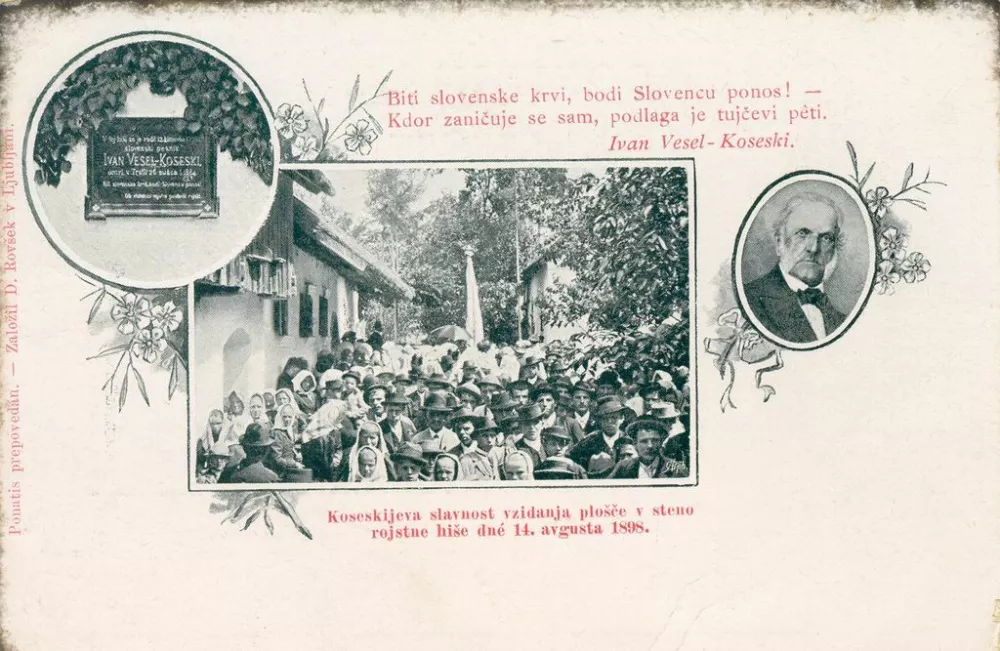 Biti slovenske krvi, bodi Slovencu ponos! —
Kdor zaničuje se sam, podlaga je tujčevi pêti.
Ivan Vesel-Koseski.
slovenski pesnik
IVAN VESEL-KOSESKI,
umrl v Trstu 26
Koseskijeva slavnost vzidanja plošče v steno
rojstne hiše dné 14. avgusta 1898.
Ponatis prepovedan. — Založil D. Rovšek v Ljubljani.